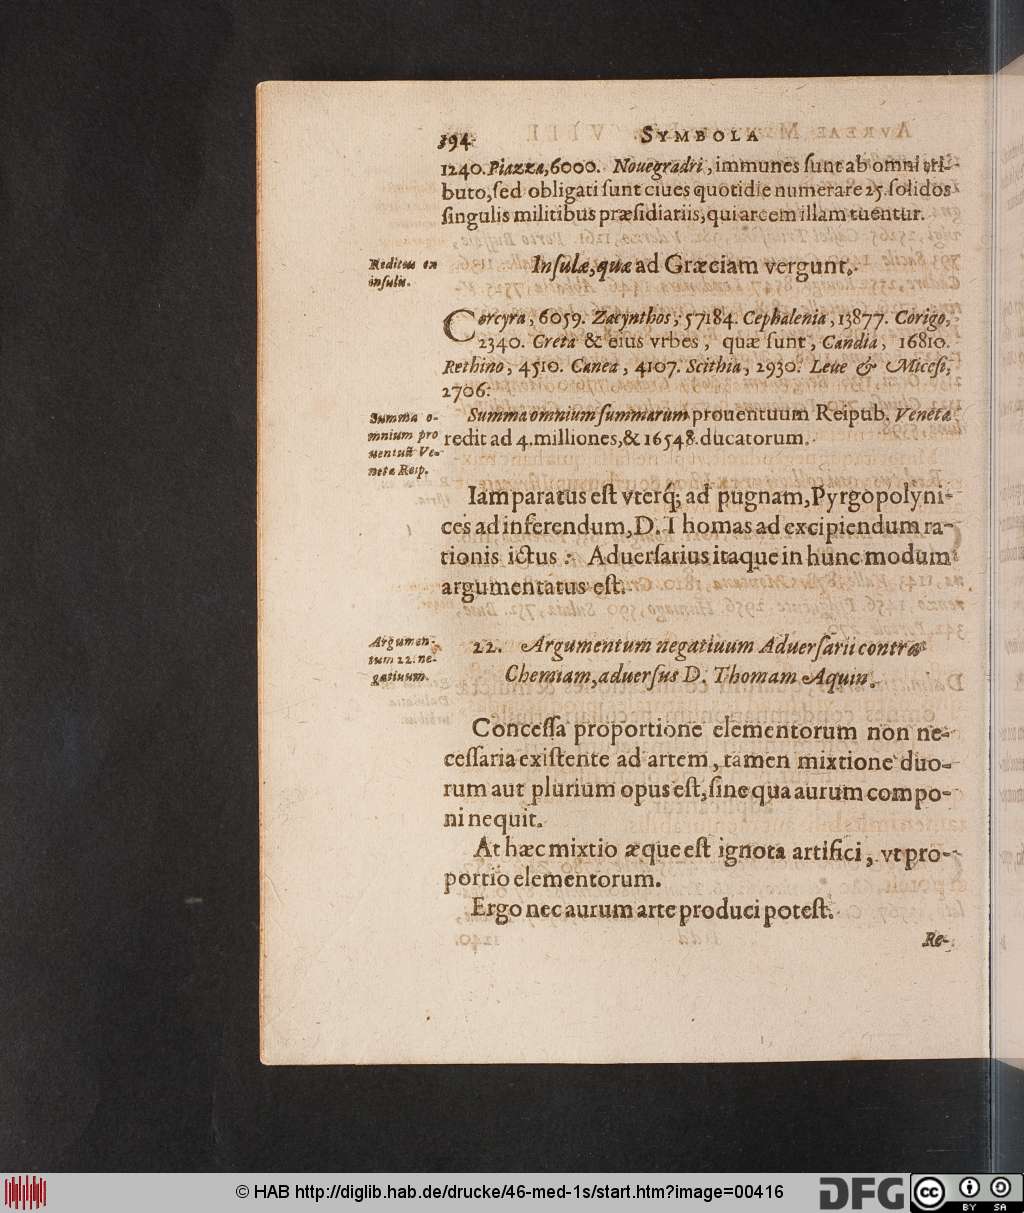 394 SYMBOLA
1240. Piazza, 6000. Nouegradri, immunes sunt ab omni tri-
buto, sed obligati sunt ciues quotidie numerare 25. solidos
singulis militibus præsidiariis, qui arcem illam tuentur.
Reditus ex
insulis.
Insulæ, quæ ad Græciam vergunt.
Corcyra, 6059. Zacynthos, 57184. Cephalenia, 13877. Corigo,
2340. Creta & eius vrbes, quæ sunt, Candia, 16810.
Rethino, 4510. Canea, 4107. Scithia, 2930. Leue & Micesi,
2706.
Summa o-
mnium pro
uentuũ Ve-
netæ Reip.
Summa omnium summarum prouentuum Reipub. Venetæ
redit ad 4. milliones, & 16548. ducatorum.
Iam paratus est vterq; ad pugnam, Pyrgopolyni-
ces ad inferendum, D. Thomas ad excipiendum ra-
tionis ictus: Aduersarius itaque in hunc modum
argumentatus est.
Argumen-
tum 22. ne-
gatiuum.
22. Argumentum negatiuum Aduersarii contra
Chemiam, aduersus D. Thomam Aquin.
Concessa proportione elementorum non ne-
cessaria existente ad artem, tamen mixtione duo-
rum aut plurium opus est, sine qua aurum compo-
ni nequit.
At hæc mixtio æque est ignota artifici, vt pro-
portio elementorum.
Ergo nec aurum arte produci potest.
Re-
© HAB http://diglib.hab.de/drucke/46-med-1s/start.htm?image=00416
DFG
cc BY SA